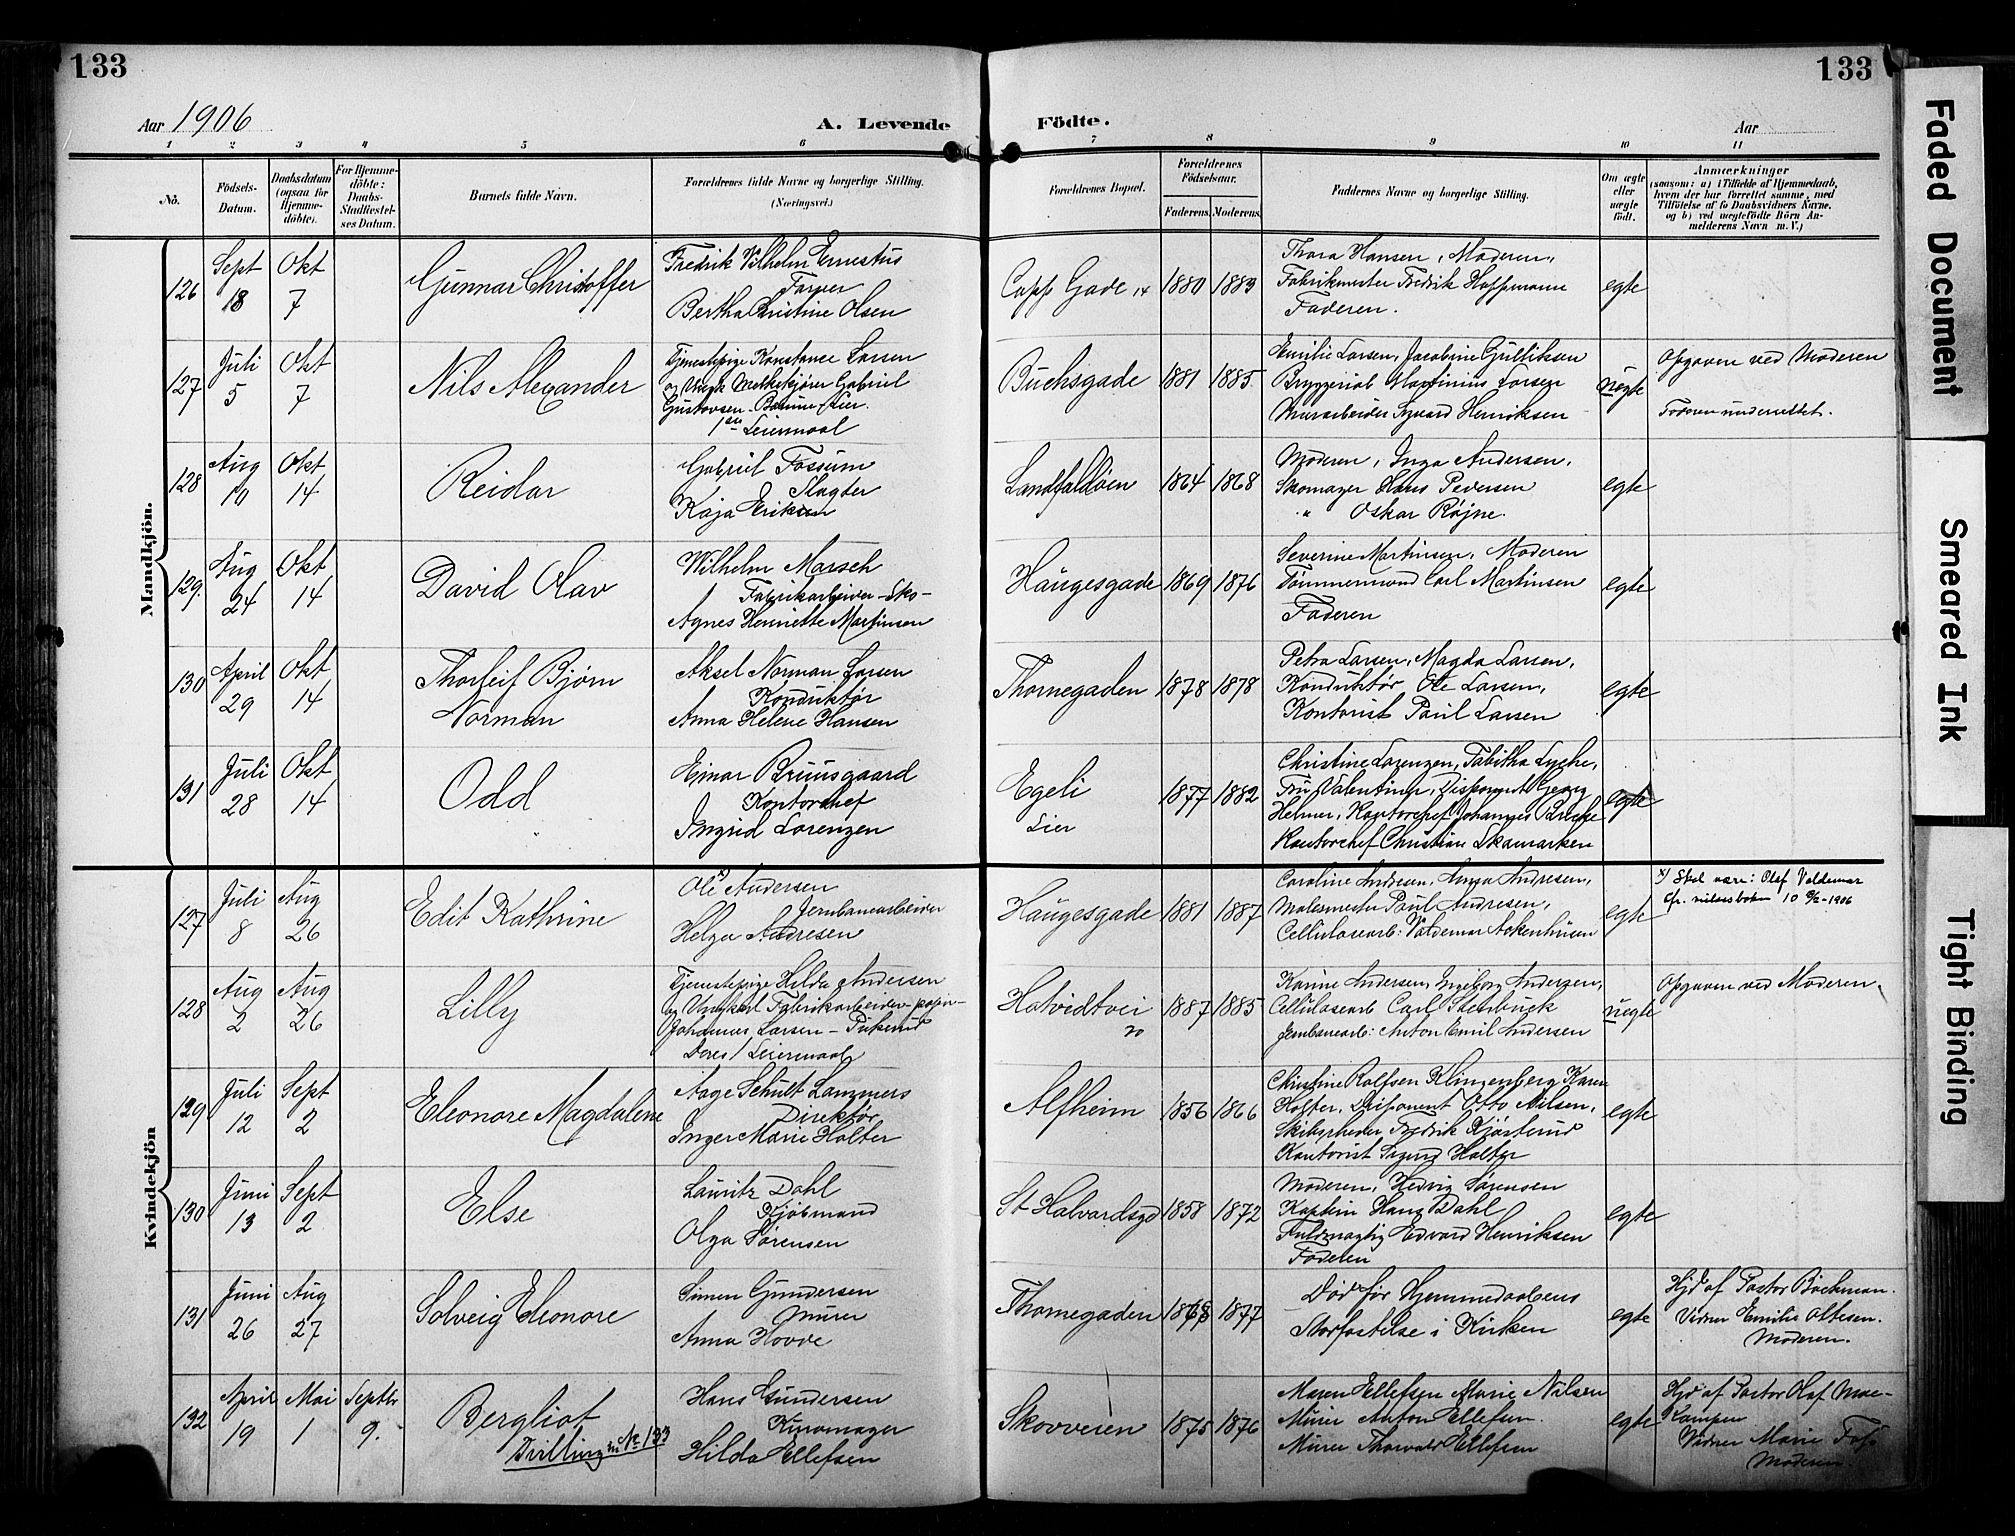 133
133
Aar 1906
A. Levende
Födte.
Aar
1 2 3 4 5 6 7 8 9 10 11
No.
Födsels-Datum.
Daabsdatum (ogsaa for Hjemme-döbte).
For Hjemme-döbte: Daabs-Stadfæstel-ses Datum.
Barnets fulde Navn.
Forældrenes fulde Navne og borgerlige Stilling.
(Næringsvei.)
Forældrenes Bopæl.
Forældrenes Födselsaar.
Faderens. Moderens.
Faddernes Navne og borgerlige Stilling.
Om ægte eller uægte födt.
Anmærkninger
(saasom: a) i Tilfælde af Hjemmedaab,
hvem der har forrettet samme, med
Tilföielse af to Daabsvidners Navne,
og b) ved uægtefödte Börn An-
melderens Navn m. V.)
Mandkjön.
126 Sept 18 Okt 7
Gunnar Christoffer
Fredrik Vilhelm Ernestus
Farver
Bertha Kristine Olsen
Capp Gade 14 1880 1883
Thora Hansen, Moderen,
Fabrikmester Fredrik Hoffmann
Faderen.
egte
127 Juli 5 Okt 7
Nils Alexander
Tjenestepige Konstance Larsen
og Ungk Melkekjører Gabriel
Gustavsen
1ste Leiermaal
Buchsgade 1881 1885
Emilie Larsen, Jacobine Gulliksen
Bryggeriarb Martinius Larsen
Murarbeider Sigvard Henriksen
uegte
Opgaven ved Moderen
Faderen underrettet.
128 Aug 10 Okt 14
Reidar
Gabriel Fossum
Slagter
Kaja Eriksen
Landfaldöen 1864 1868
Moderen, Inga Andersen,
Skomager Hans Pedersen
" Oskar Røjne.
egte
129. Aug 24 Okt 14
David Olav
Wilhelm Marsch
Fabrikarbeider - Sko -
Agnes Henriette Martinsen
Haugesgade 1869 1876
Severine Martinsen, Moderen
Tømmermand Carl Martinsen
Faderen
egte
130 April 29 Okt 14
Thorleif Bjørn
Norman
Aksel Norman Larsen
Konduktör
Anna Helene Hansen
Thornegaden 1878 1878
Petra Larsen, Magda Larsen,
Konduktør Ole Larsen,
Kontorist Paul Larsen
egte
131 Juli 28 Okt 14
Odd
Einar Bruusgaard
Kontorchef
Ingrid Lorenzen
Egeli
Lier
1877 1882
Christine Lorenzen, Tabitha Lyche,
Fru Valentiner, Disponent Georg
Helmer, Kontorchef Johannes
Kontorchef Christian Skamarken
egte
Kvindekjön
127 Juli 8 Aug 26
Edit Kathrine
Ole x) Andersen
Jernbanearbeider
Helga Andresen
Haugesgade 1881 1887
Caroline Andresen, Anna Andresen,
Malermester Paul Andresen,
Cellulosearb: Valdemar Aakenhusen
egte
x) Skal være: Olaf Valdemar
cfr. vielsesboken 10 6/2-1906
128 Aug 2 Aug 26
Lilly
Tjenestepige Hilda Andersen
og Ungkarl Fabrikarbeider - papir -
Johannes Larsen - Pukerud
Deres 1 Leiermaal
Hotvedtvei
20
1887 1885
Karine Andersen, Ingeborg Andersen,
Cellulosearb Carl Stenbuck
Jernbanearb: Anton Emil Andersen
uegte
Opgaven ved Moderen.
129 Juli 12 Sept 2
Eleonore Magdalene
Aage Schult Lammers
Direktør
Inger Marie Holter
Alfheim 1856 1866
Christine Rolfsen Klingenberg Karen
Holter, Disponent Otto Nilsen,
Skibsrheder Fredrik Kjøsterud
Kontorist Sigurd Holter
egte
130 Juni 13 Sept 2
Else
Lauritz Dahl
Kjøbmand
Olga Sørensen
St Halvardsgd 1858 1872
Moderen, Hedvig Sørensen
Kaptein Hans Dahl
Fuldmægtig Edvard Henriksen
Faderen
egte
131 Juni 26 Aug 27
Solveig Eleonore
Simen Gundersen
Murer
Anna Hovde
Thornegaden 1868 1877
Død før Hjemmedaabens
Starfæstelse i Kirken
egte
Hjd af Pastor Böckman.
Vidner Emilie Oltesen.
Moderen.
132 April 19 Mai 1 Septbr 9.
Bergliot
Drilling m No 133
Hans Gundersen
Kurvmager
Hilda Ellefsen
Skovveien 1875 1876
Maren Ellefsen Marie Nilsen
Murer Anton Ellefsen.
Murer Thorvald Ellefsen
egte
Hjd af Pastor Olaf Moe-
Kampen
Vidner Marie
Moderen.
Faded Document
Smeared Ink
Tight Binding